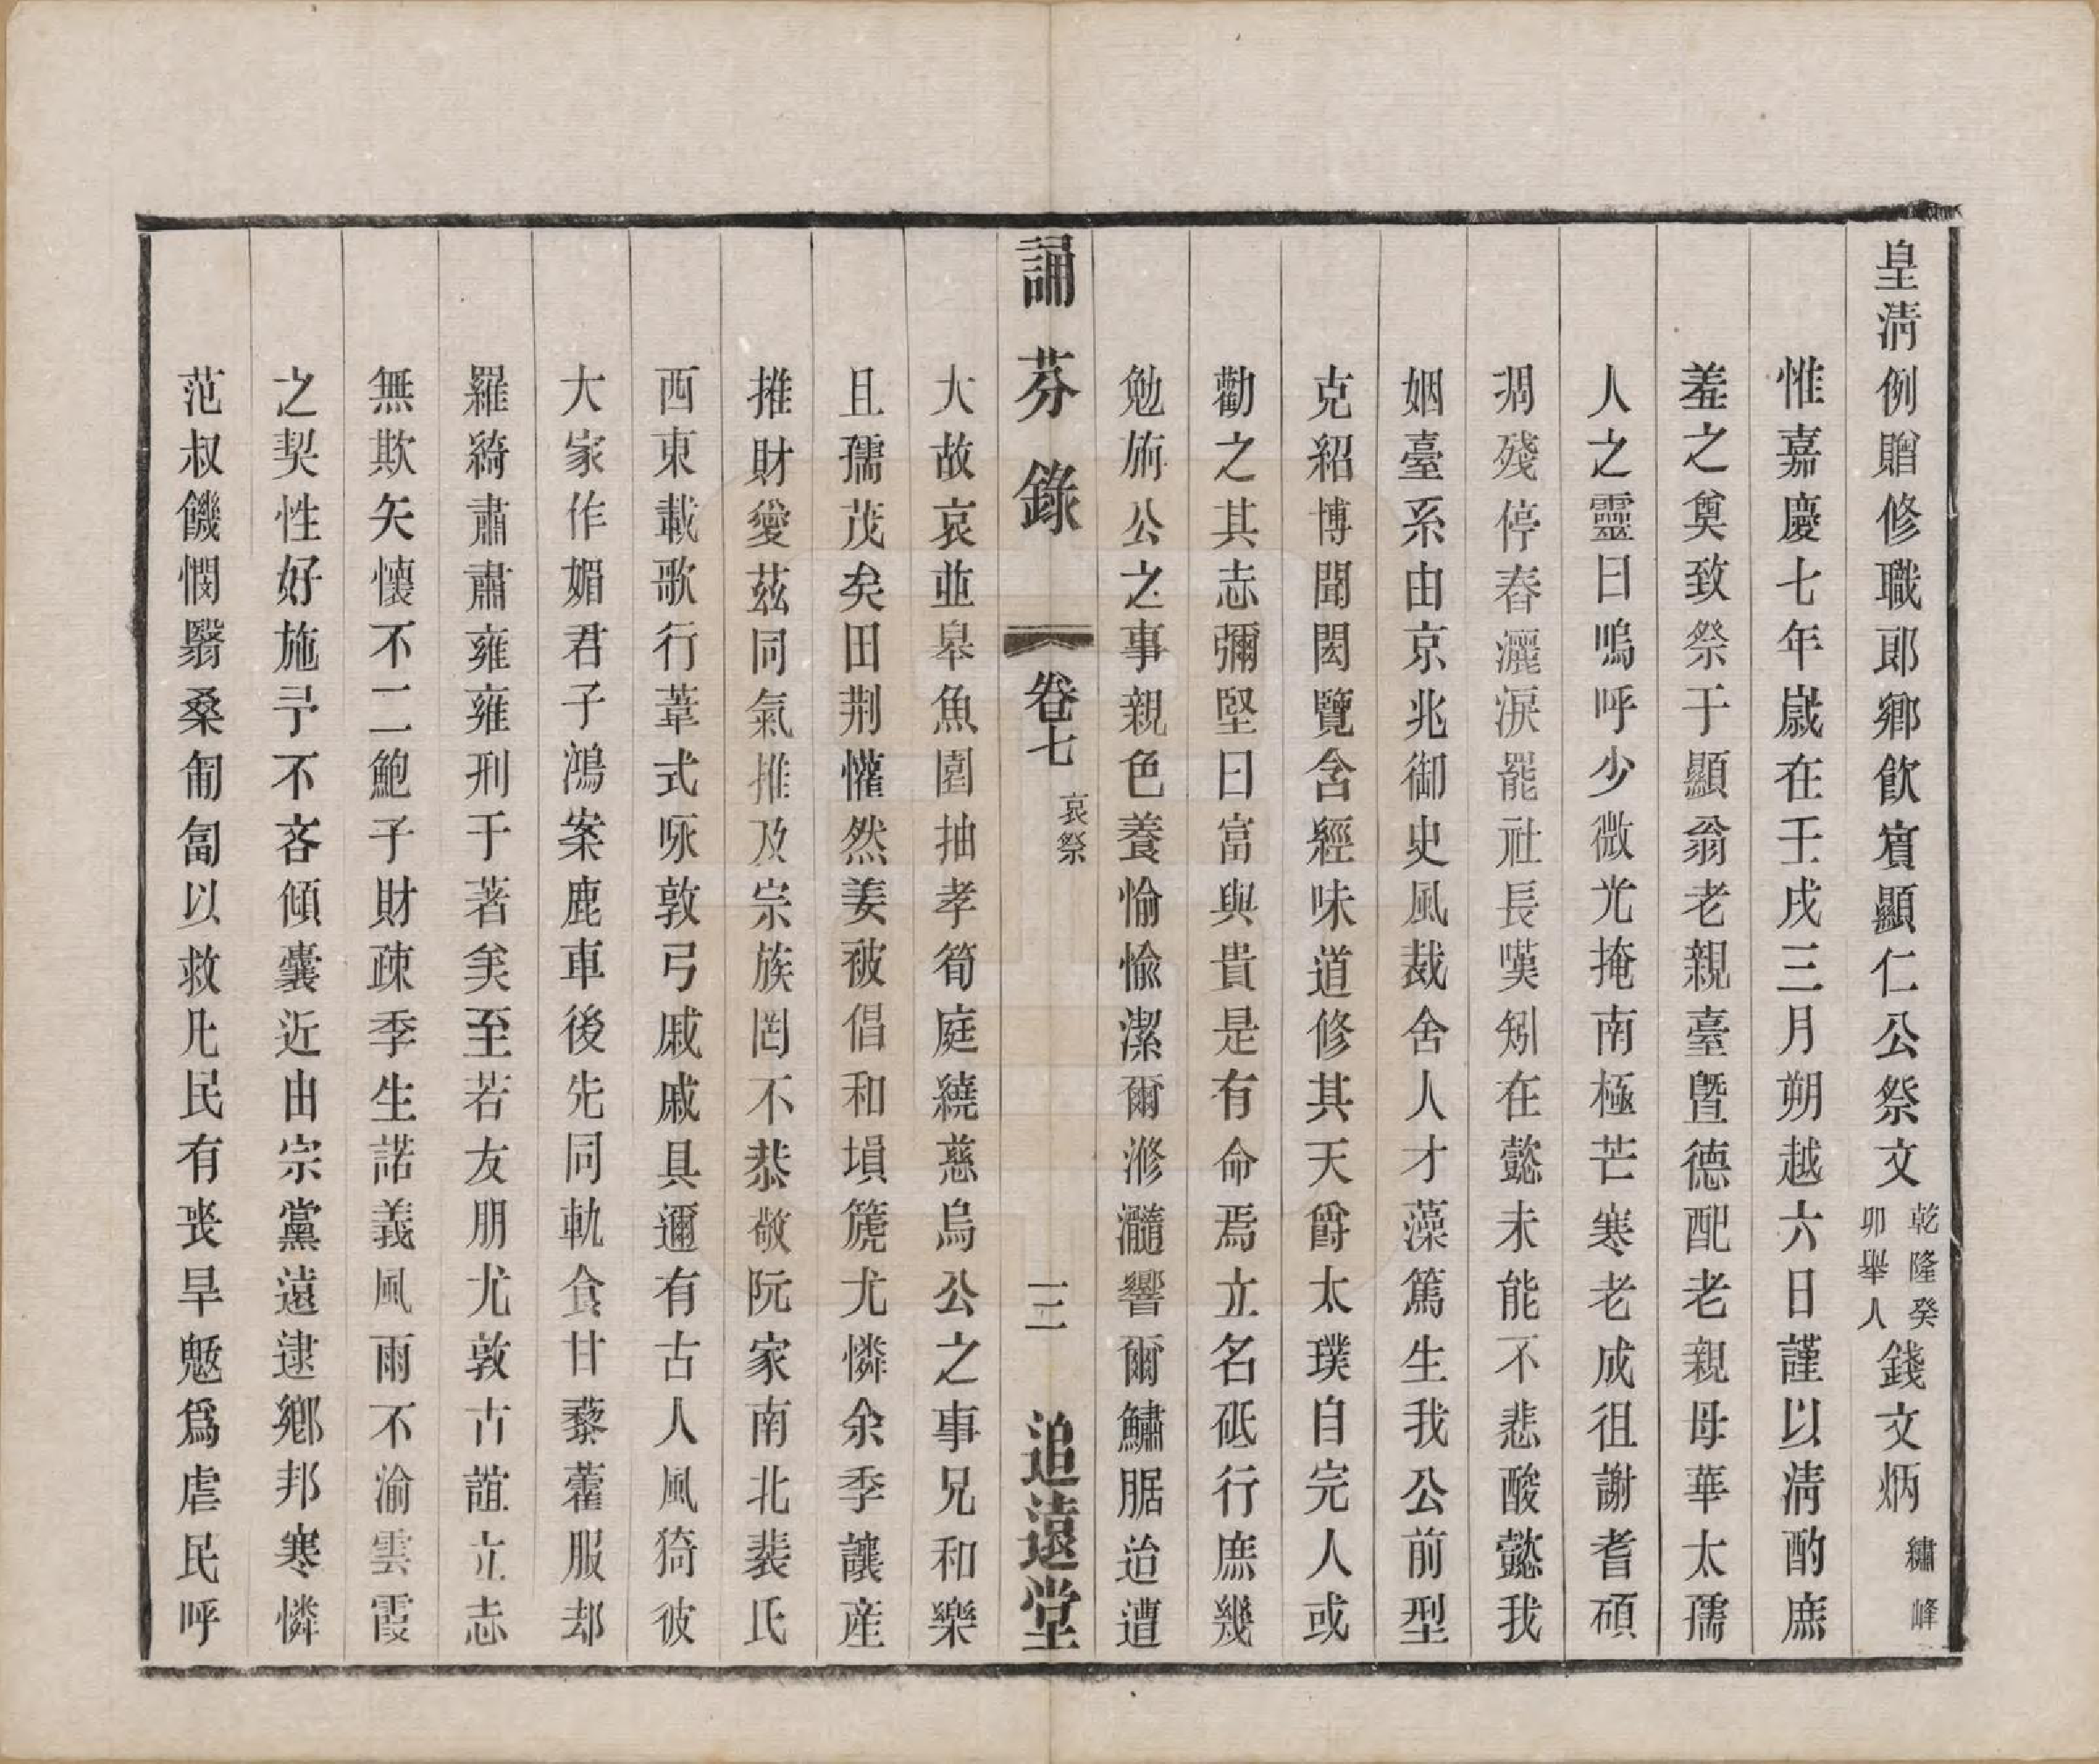 皇淸例贈修職郞鄉飮賓顯仁公祭文 乾隆癸卯舉人 錢文炳 繡峰
惟嘉慶七年歲在壬戌三月朔越六日謹以淸酌庶
羞之奠致祭于顯翁老親臺曁德配老親母華太孺
人之靈曰嗚呼少微光掩南極芒寒老成徂謝耆碩
凋殘停舂灑淚罷社長嘆矧在懿未能不悲酸懿我
姻臺系由京兆御史風裁舍人才藻篤生我公前型
克紹博聞閎覽含經味道修其天爵太璞自完人或
勸之其志彌堅曰富與貴是有命焉立名砥行庶幾
勉旃公之事親色養愉愉潔爾滫瀡響爾鱐腒迨遭
大故哀並皋魚園抽孝筍庭繞慈烏公之事兄和樂
且孺茂矣田荆懽然姜被倡和塤篪尤憐余季讓産
推財愛茲同氣推及宗族罔不恭敬阮家南北裴氏
西東載歌行葦式咏敦弓戚戚具邇有古人風猗彼
大家作媚君子鴻案鹿車後先同軌食甘藜藿服却
羅綺肅肅雍雍刑于著矣至若友朋尤敦古誼立志
無欺矢懷不二鮑子財疎季生諾義風雨不渝雲霞
之契性好施予不吝傾囊近由宗黨遠逮鄉邦寒憐
范叔饑憫翳桑匍匐以救凡民有喪旱魃爲虐民呼
誦芬錄 卷七 哀祭 三 追遠堂